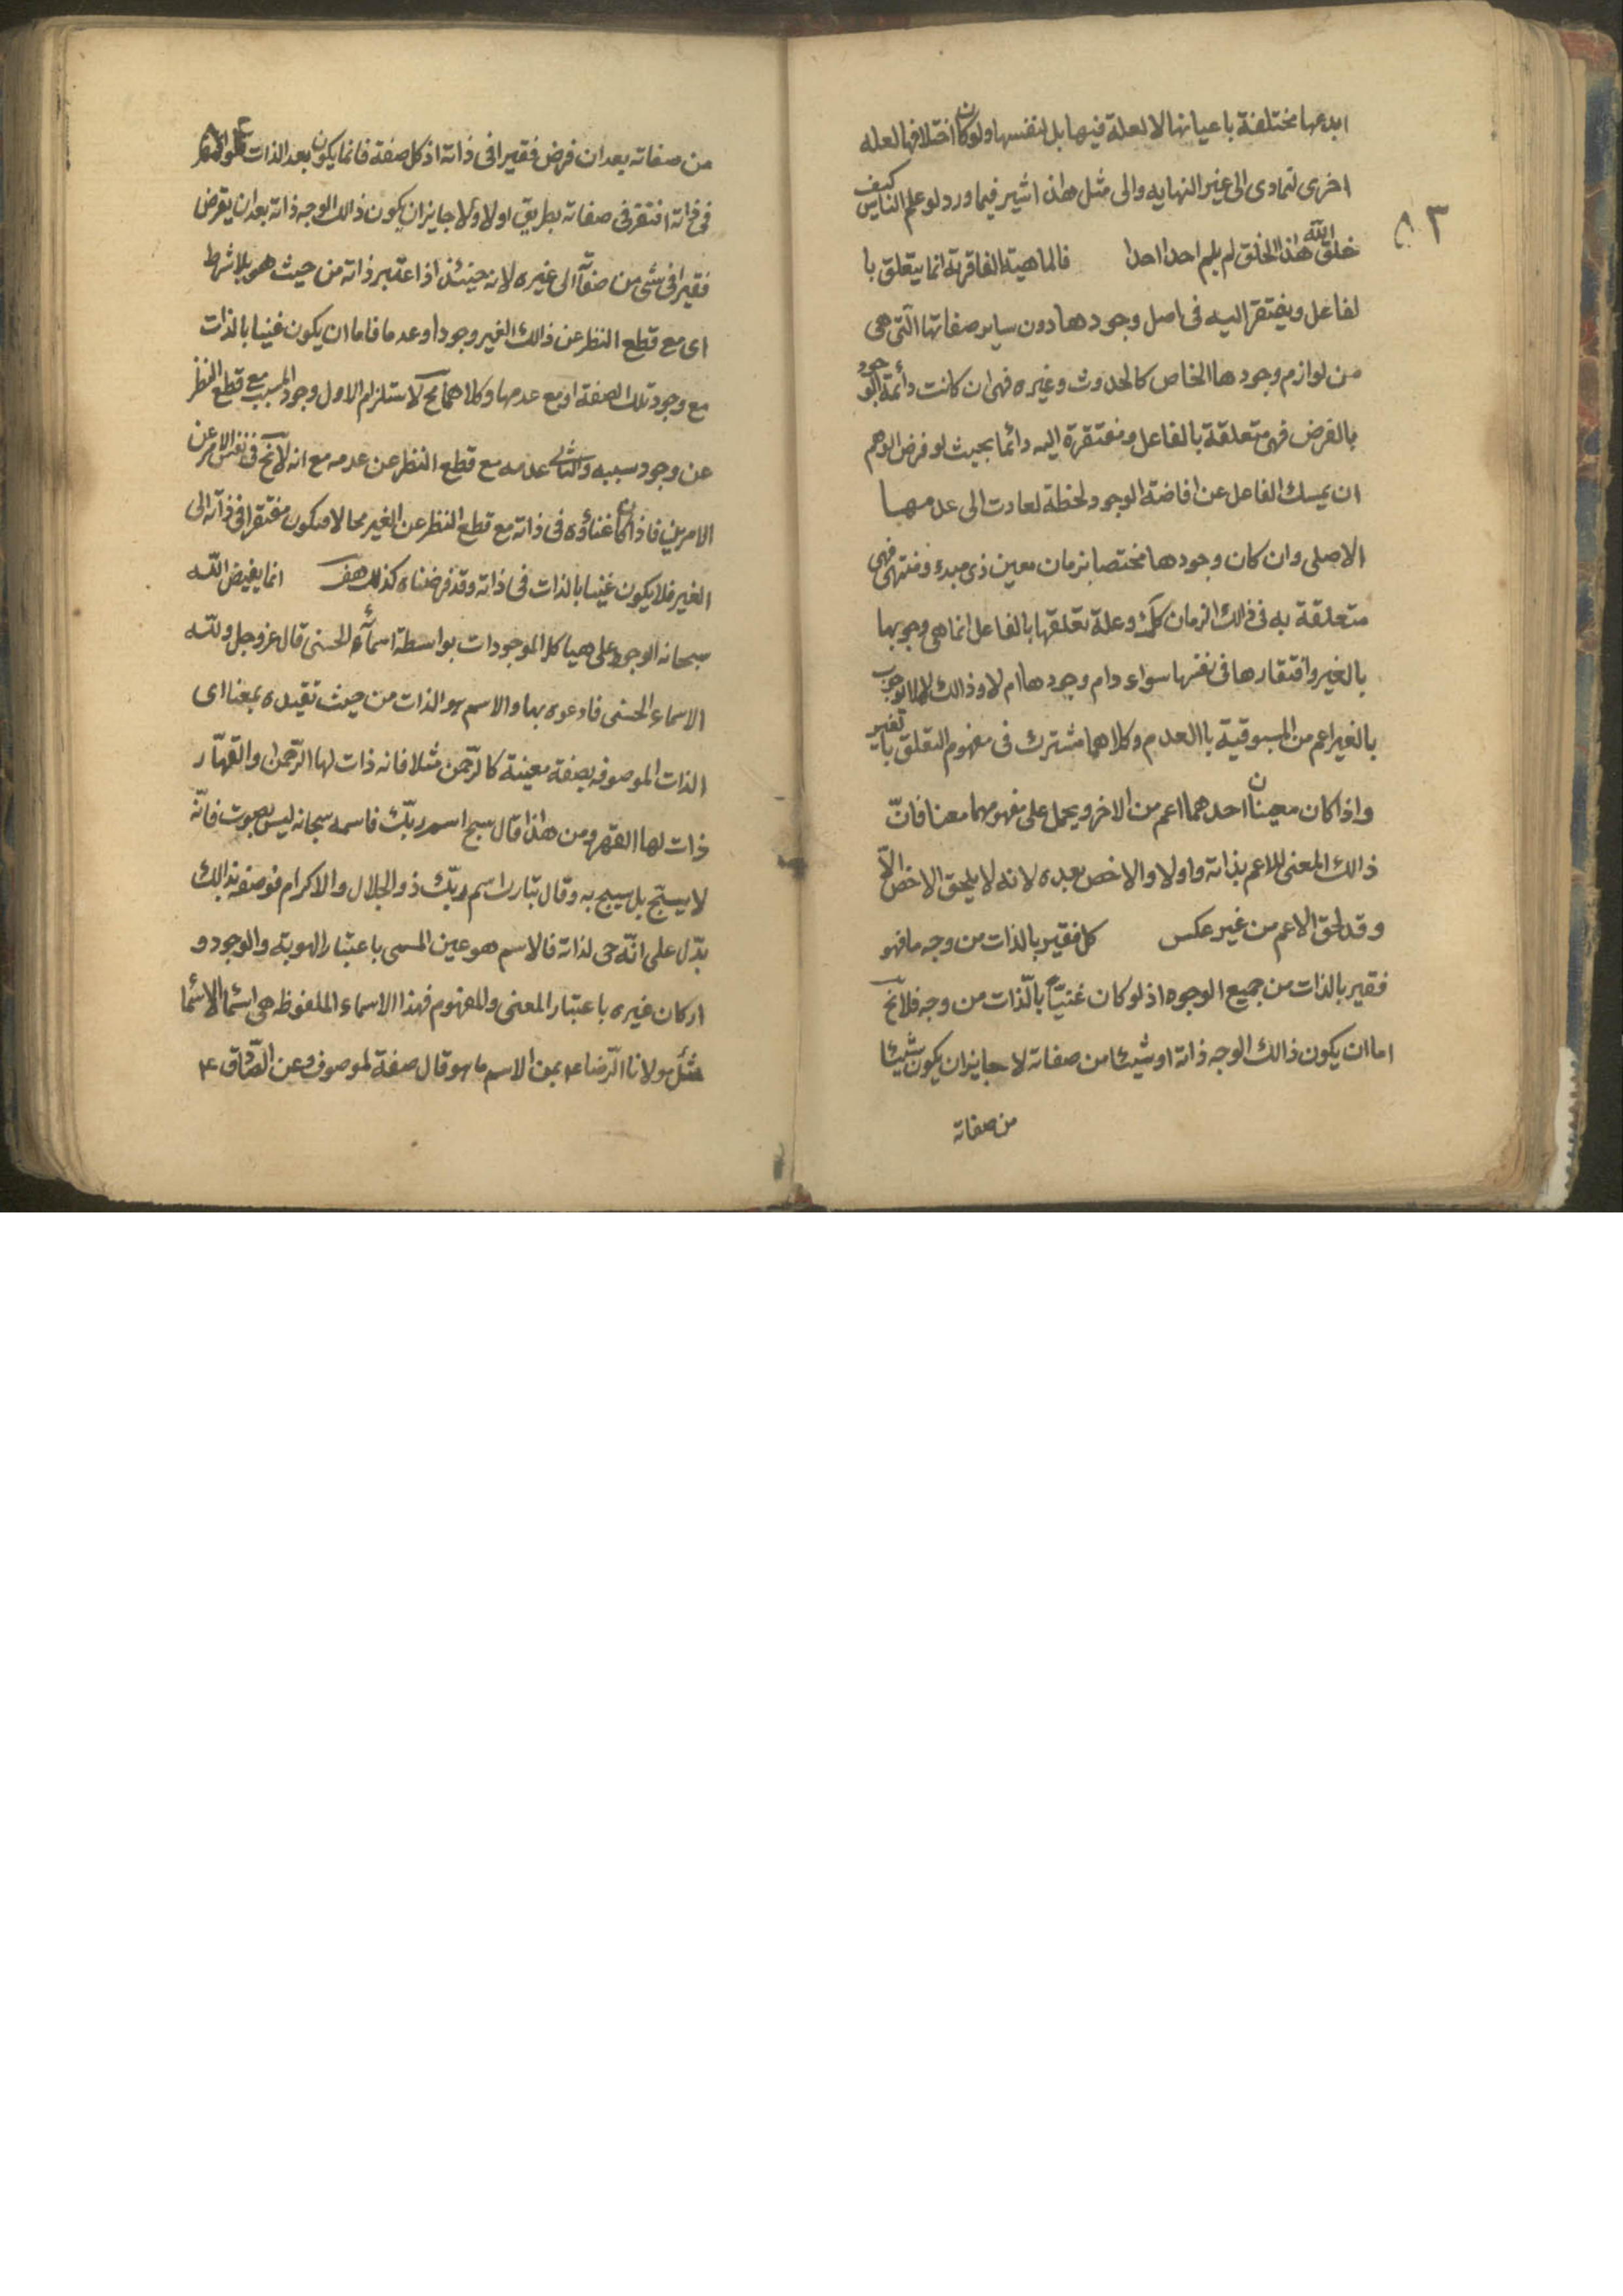 ابدعها مختلفة باعيانها لا لعلة فيها بل لنفسها ولو كان اختلافها لعله
اخرى لتمادى الى غير النهايه والى مثل هذا اشير فيما ورد لو علم الناس كيف
٨٣
خلق الله هذا الخلق لم يلم احد احدا فالماهية الفاقرة انما يتعلق با
لفاعل ويفتقر اليه فى اصل وجودها دون ساير صفاتها الّتى هى
من لوازم وجودها الخاص كالحدوث وغيره فهى ان كانت دائمة الوجود
بالفرض فهى متعلقة بالفاعل ومفتقرة اليه دائما بحيث لو فرض الوهم
ان يمسك الفاعل عن افاضة الوجود لحظة لعادت الى عدمها
الاصلى وان كان وجودها مختصا بزمان معين ذى مبدء ومنتهى فهى
متعلقة به فى ذالك الزمان كك وعلة تعلقها بالفاعل انما هى وجوبها
بالغير وافتقارها فى نفسها سواء دام وجودها ام لا وذالك لان الوجوب
بالغير اعم من المسبوقية باالعدم وكلاهما مشترك فى مفهوم التعلق بالغير
واذا كان معينان احدهما اعم من الاخر ويحمل على مفهومهما معنا فانّ
ذالك المعنى للاعم بذاته واولا والاخص بعده لانه لا يلحق الاخص الّا
وقد لحق الاعم من غير عكس كل فقير بالذات من وجه ما فهو
فقير بالذات من جميع الوجوه اذ لو كان غنيّاً بالّذات من وجه فلا يخ
اما ان يكون ذالك الوجه ذاته او شيئا من صفاته لا جايز ان يكون شيئا
من صفاته
من صفاته بعد ان فرض فقيرا فى ذاته اذ كل صفة فانما يكون بعد الذات
فى ذاته افتقر فى صفاته بطريق اولا ولا جايز ان يكون ذالك الوجه ذاته بعد ان يفرض
فقيرا فى شى من صفآته الى غيره لانه حينئذ اذا اعتبر ذاته من حيث هو بلا شرط
اى مع قطع النظر عن ذالك الغير وجودا وعدما فاما ان يكون غنيا بالذات
مع وجود تلك الصفة او مع عدمها وكلاهما مح لاستلزام الاول وجود المسبب مع قطع النظر
عن وجود سببه والثانى عدمه مع قطع النظر عن عدمه مع انه لا يخ فى نفس الامر عن
الامرين فاذا كان غناؤه فى ذاته مع قطع النظر عن الغير محالا فيكون مفتقرا فى ذآته الى
الغير فلا يكون غنيا بالذات فى ذاته وقد فرضناه كذلك هف انما يفيض اللّه
سبحانه الوجود على هياكل الموجودات بواسطة اسمآئه الحسنى قال عز وجل وللّه
الاسماء الحسنى فادعوه بها والاسم هو الذات من حيث تقيده بمعنا اى
الذات الموصوفه بصفة معينة كالرّحمن مثلا فانه ذات لها الرّحمة والقهّار
ذات لها القهر ومن هذا قال سبح اسم ربّك فاسمه سبحانه ليس بصوت فانّه
لا يسبّح بل يسبح به وقال تبارك اسم ربّك ذو الجلال والاكرام فوصفه بذالك
يدّل على انّه حى لذاته فالاسم هو عين المسمى باعتبار الهوية والوجود و
ان كان غيره باعتبار المعنى والمفهوم فهذا الاسماء الملفوظه هى اسمآ الاسمآ
سئل مولانا الرّضا ع عن الاسم ما هو قال صفة لموصوف وعن الصّادق ع